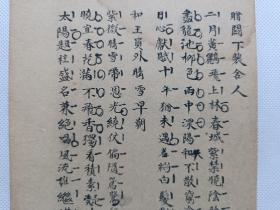 贈闕下裴舍人
二月黃鸝飛上林春城紫禁曉陰
盡龍池柳色雨中深陽和不散窮
日心獻賦十年猶未遇羞將白髮
和王員外晴雪早朝
紫微晴雪帶恩光繞仗偏隨鴛
曉宜春花滿不飛香獨看積素凝
太陽題柱盛名兼絕唱風流誰繼